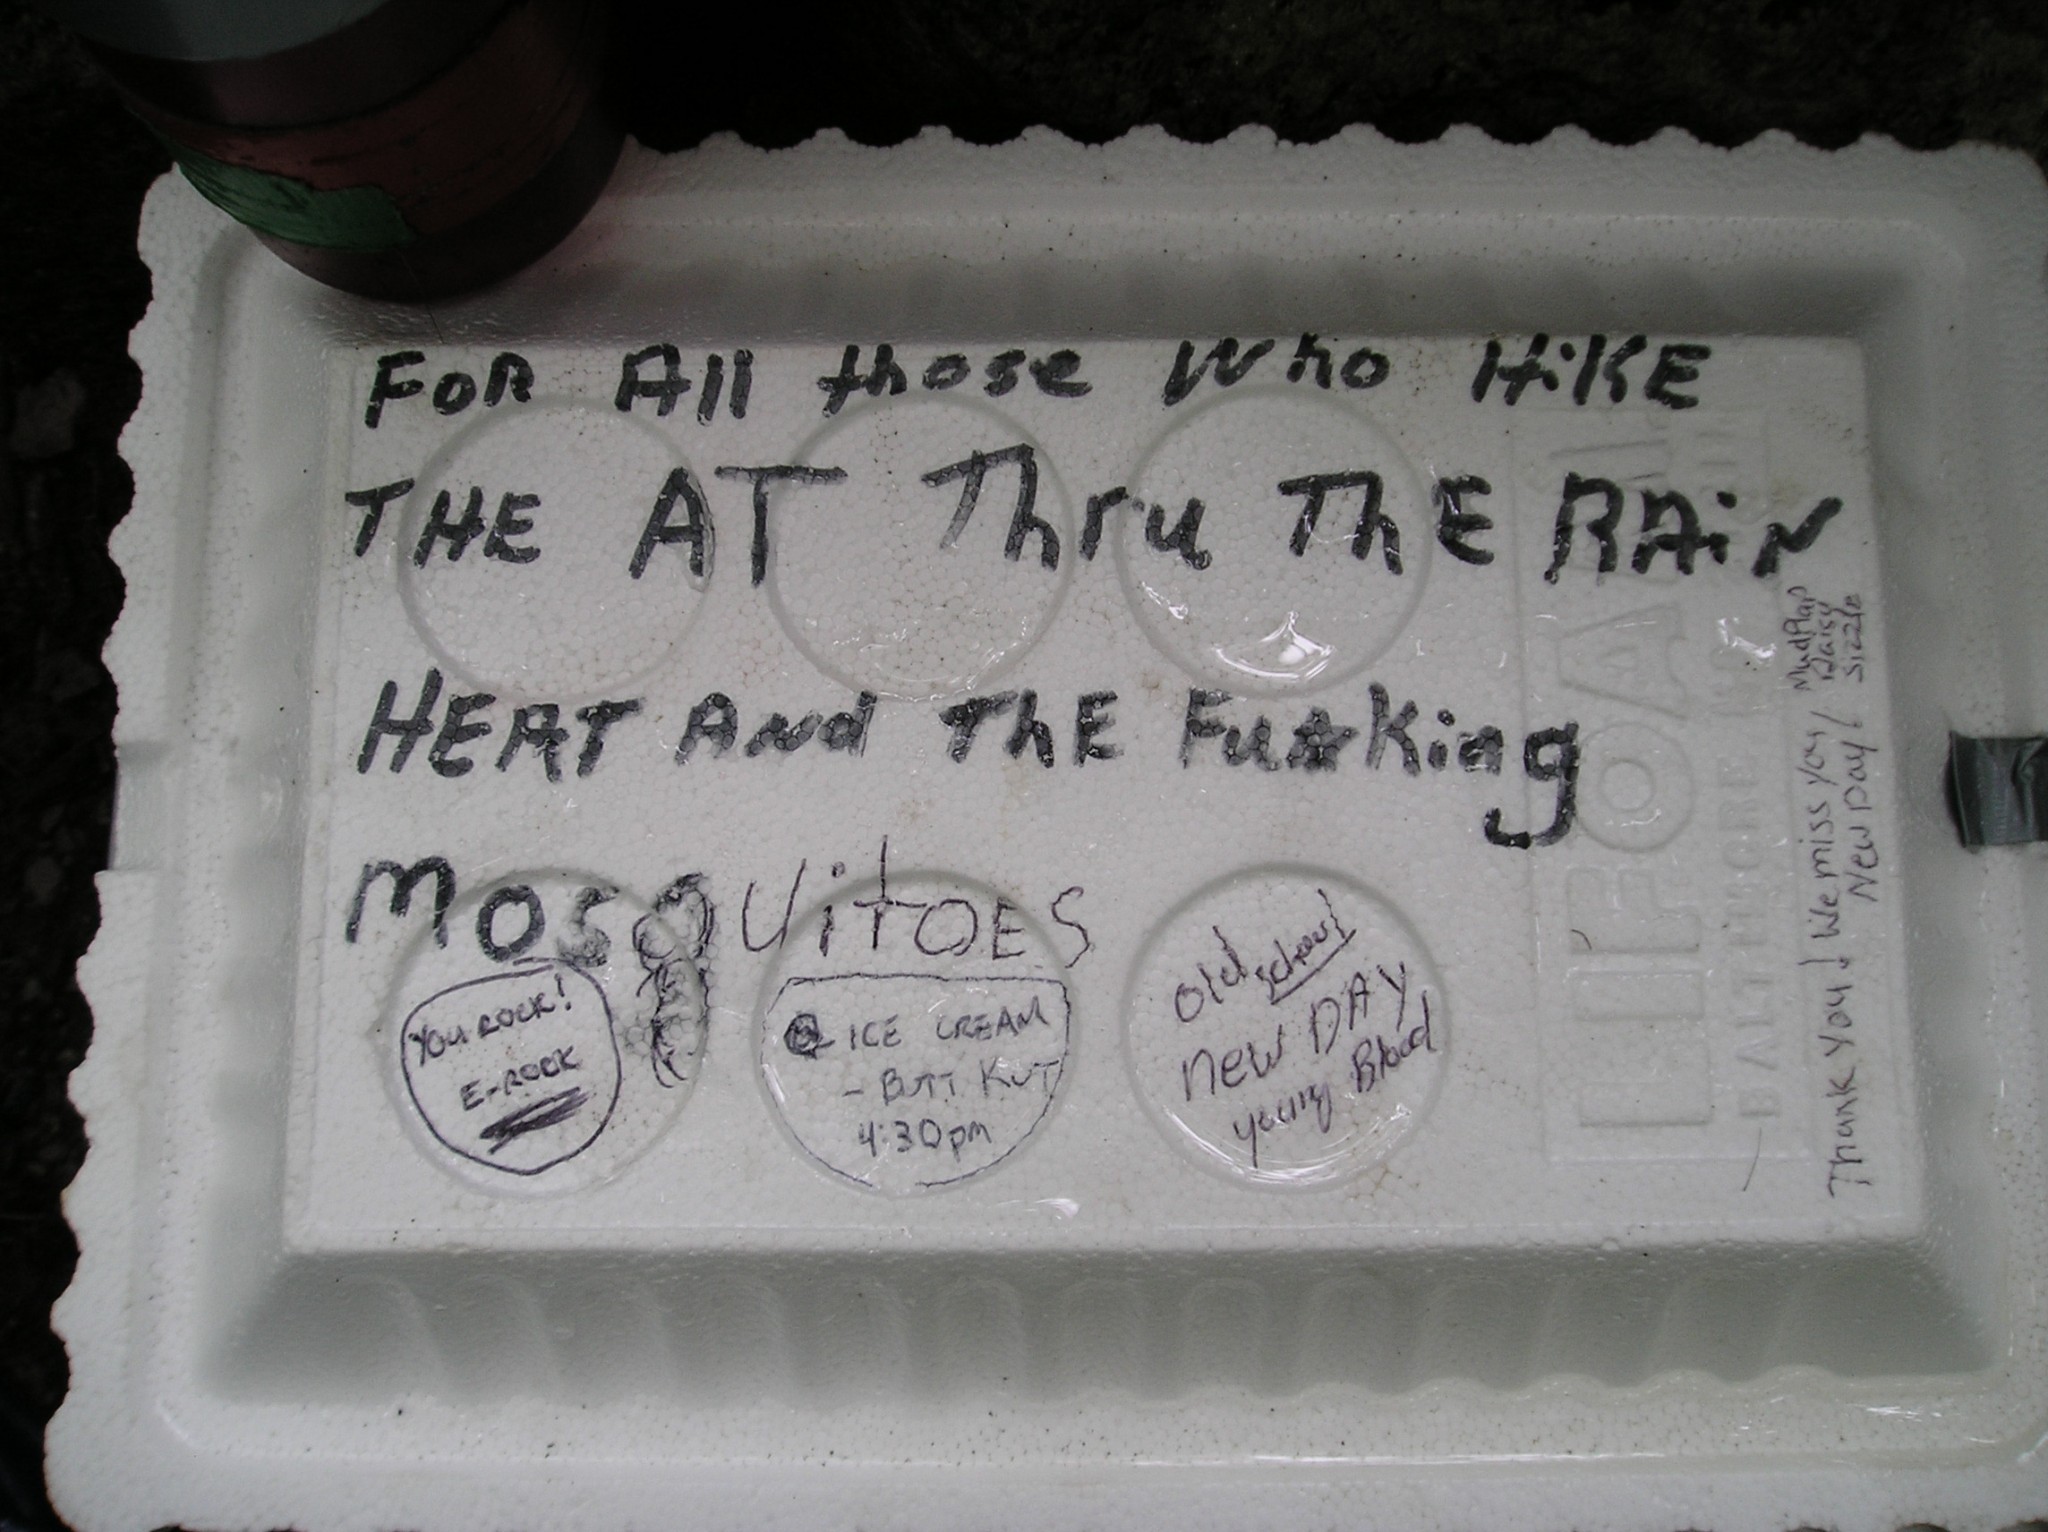 FOR All those Who HiKE
THE AT Thru ThE RAiN
HEAT And ThE Fu☆King
MosqUiTOES
YOU ROCK!
E-ROCK
ICE CREAM
- BUTT KUT
4:30pm
Old School
New DAY
young Blood
Thank You! We miss you! MudFlap
New Day! Daisy
Sizzle
LIFOAM
BALTIMORE